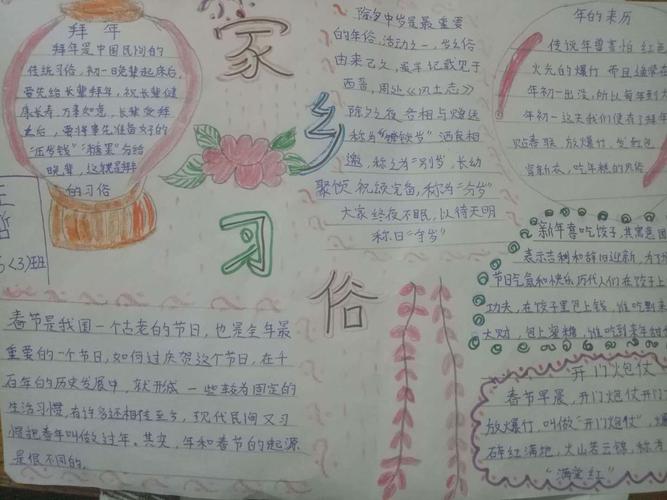 家
乡
习
俗
拜 年
拜年是中国民间的
传统习俗,初一晚辈起床后,
要先给长辈拜年,祝长辈健
康长寿,万事如意,长辈受拜
之后,要将事先准备好的
“压岁钱”“糖果”分给
晚辈,这就是拜
的习俗
(3)班
除夕守岁是最重要
的年俗活动之一,守岁俗
由来已久,最早记载见于
西晋,周处《风土志》
除夕之夜各相与赠送
称为“馈岁”酒食相
邀,称之为“别岁”,长幼
聚饮 祝颂完备,称为“分岁”
大家终夜不眠,以待天明
称曰“守岁”
年的来历
传说年兽害怕红色
火光的爆竹 而且通常在
年初一出没,所以每年到
年初一这天我们便有了拜年
贴春联,放爆竹,发红包
穿新衣,吃年糕的风俗
新年喜吃饺子,其寓意团
表示吉利和辞旧迎新,为了
节日气氛和快乐历代人们在饺子
功夫,在饺子里包上钱,谁吃到来
大财,包上蜜糖,谁吃到来年甜
春节是我国一个古老的节日,也是全年最
重要的一个节日,如何过庆贺这个节日,在千
百年的历史发展中,就形成 一些较为固定的
生活习惯,有许多还相传至今,现代民间又习
惯把春年叫做过年。其实,年和春节的起源
是很不同的。
开门炮仗
春节早晨,开门炮仗开门
放爆竹,叫做“开门炮仗”,
碎红满地,火山若云锦,称为
“满堂红”